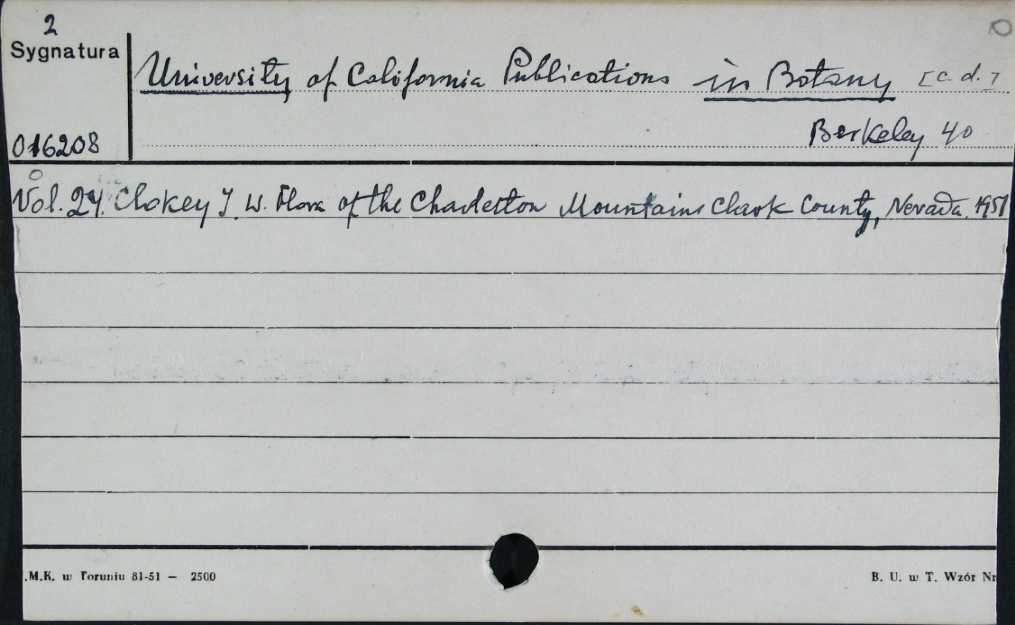 2
Sygnatura
University of California Publications in Botany [c. d.]
Berkeley 40
016208
Vol. 24. Clokey I. W. Flora of the Charleston Mountains Clark County, Nevada. 1951
.M.K. w Toruniu 81-51 — 2500
B. U. w T. Wzór Nr